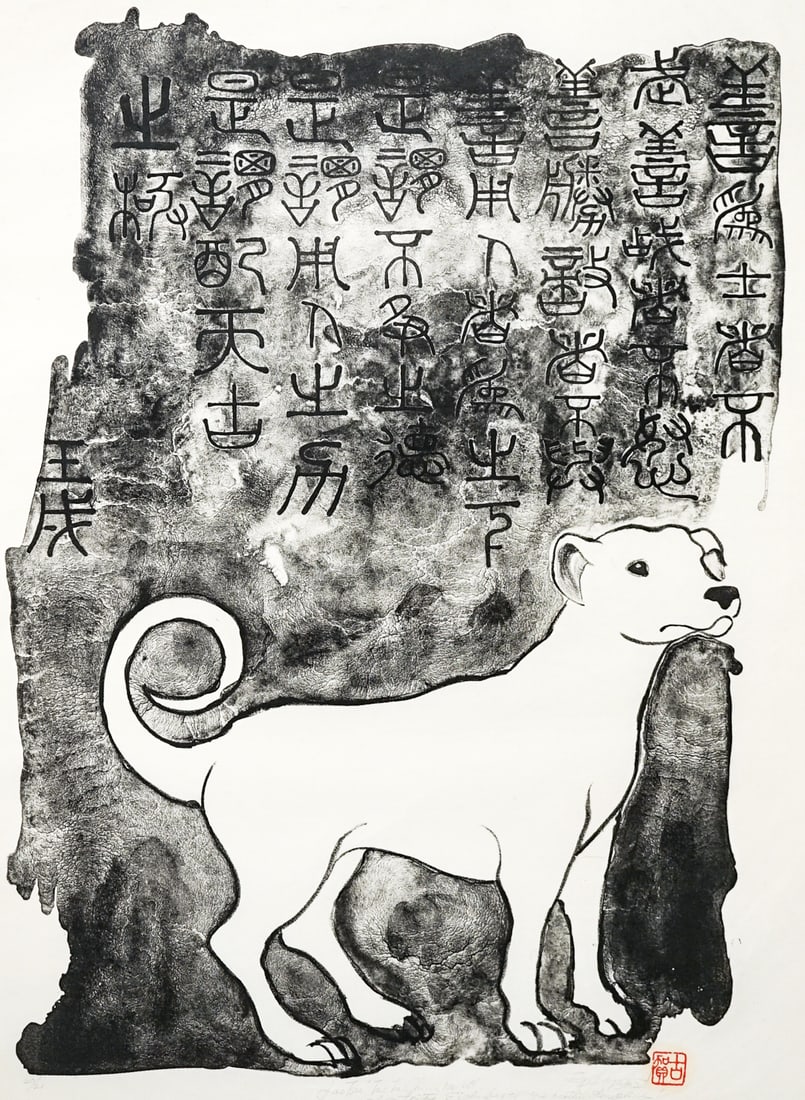 善爲士者不
武善戰者不怒
善勝敵者不與
善用人者爲之下
是謂不爭之德
是謂用人之力
是謂配天古
之極
壬戌